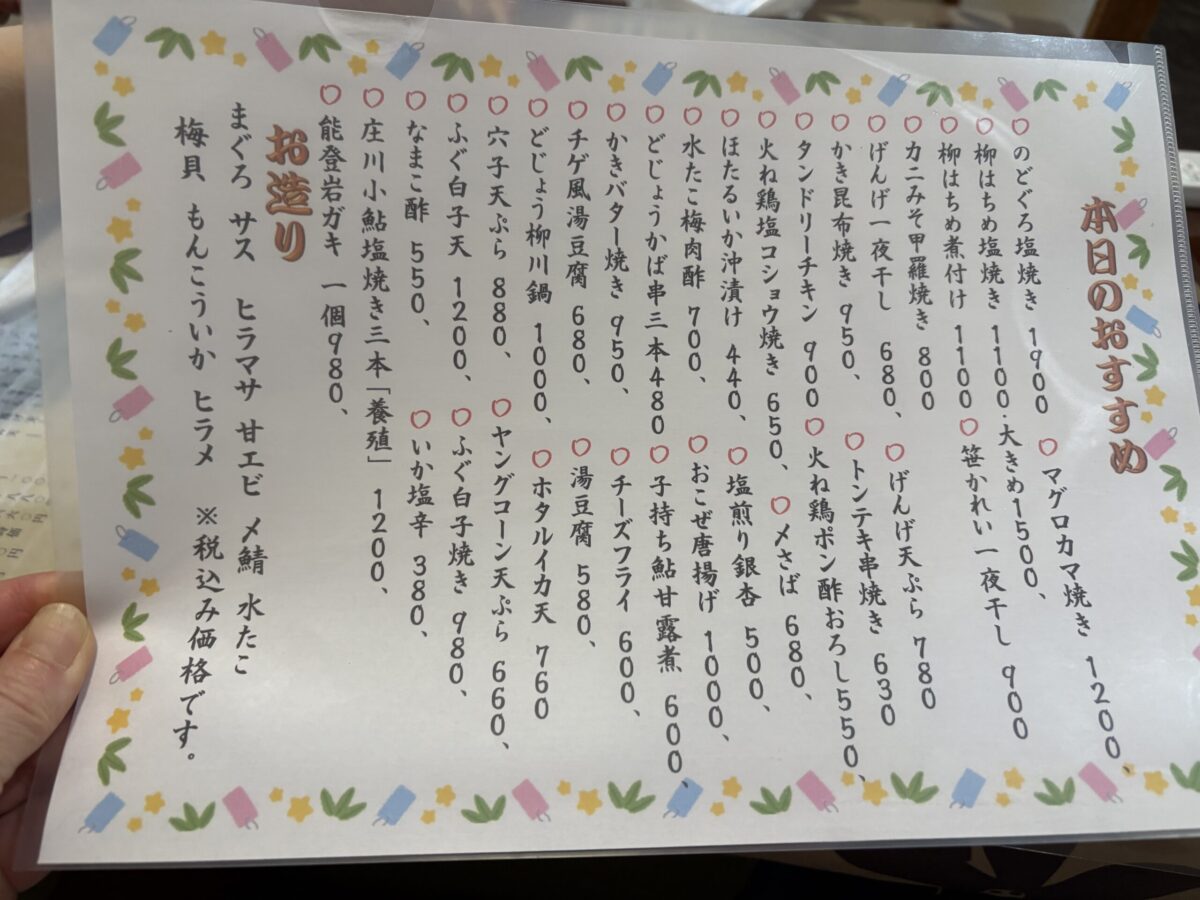 本日のおすすめ
○のどぐろ塩焼き 1900 ○マグロカマ焼き 1200、
○柳はちめ塩焼き 1100・大きめ1500、
○柳はちめ煮付け 1100 ○笹かれい一夜干し 900
○カニみそ甲羅焼き 800
○げんげ一夜干し 680、 ○げんげ天ぷら 780
○かき昆布焼き 950、 ○トンテキ串焼き 630
○タンドリーチキン 900 ○火ね鶏ポン酢おろし550、
○火ね鶏塩コショウ焼き 650、 ○〆さば 680、
○ほたるいか沖漬け 440、 ○塩煎り銀杏 500、
○水たこ梅肉酢 700、 ○おこぜ唐揚げ 1000、
○どじょうかば串三本480 ○子持ち鮎甘露煮 600、
○かきバター焼き 950、 ○チーズフライ 600、
○チゲ風湯豆腐 680、 ○湯豆腐 580、
○どじょう柳川鍋 1000、 ○ホタルイカ天 760
○穴子天ぷら 880、 ○ヤングコーン天ぷら 660、
○ふぐ白子天 1200、 ○ふぐ白子焼き 980、
○なまこ酢 550、 ○いか塩辛 380、
○庄川小鮎塩焼き三本「養殖」 1200、
○能登岩ガキ 一個980、
お造り
まぐろ サス ヒラマサ 甘エビ 〆鯖 水たこ
梅貝 もんこういか ヒラメ ※税込み価格です。